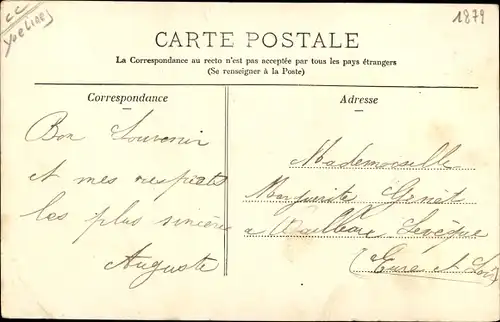 CC
Yvelines
1879
CARTE POSTALE
La Correspondance au recto n'est pas acceptée par tous les pays étrangers
(Se renseigner à la Poste)
Correspondance
Bon Souvenir
et mes respects
les plus sincères
Auguste
Adresse
Mademoiselle
Marguerite
à Lévêque
(Eure et Loir)